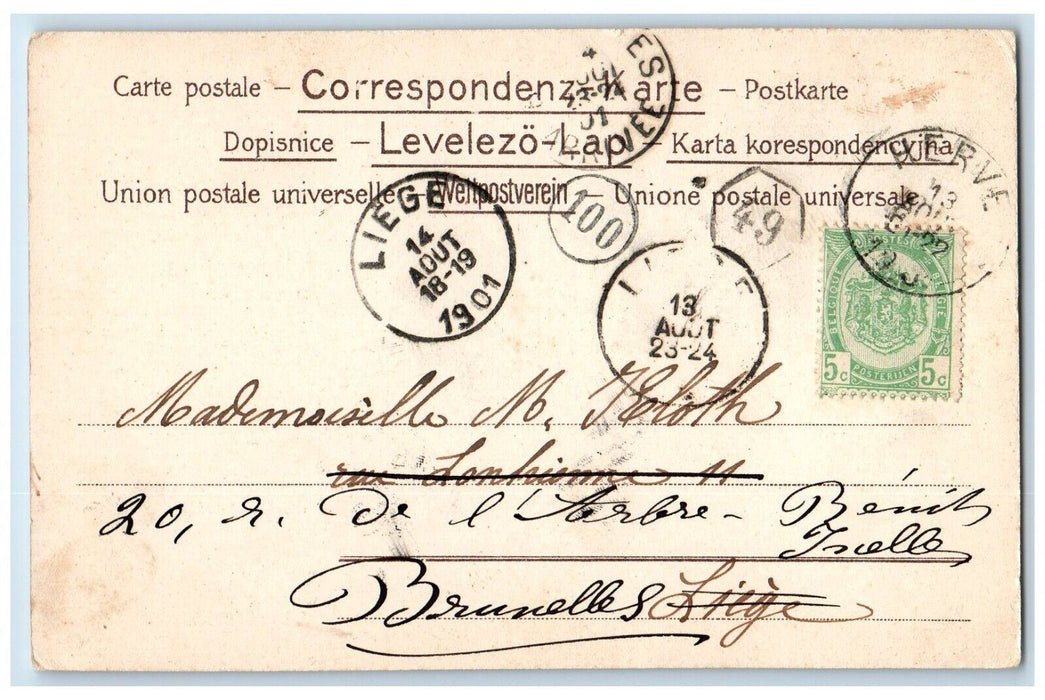 Carte postale – Correspondenz-Karte – Postkarte
Dopisnice – Levelező-Lap – Karta korespondencyjna
Union postale universelle – Weltpostverein – Unione postale universale.
ES
ARRIVÉE
HERVE
13
AOUT
LIEGE
14
AOUT
18-19
1901
100
49
13
AOUT
23-24
BELGIQUE
BELGIË
5c POSTERIJEN 5c
Mademoiselle M. Kloth
rue 11
20, r. De l'Arbre-Bénit
Ixelles
Bruxelles Liège